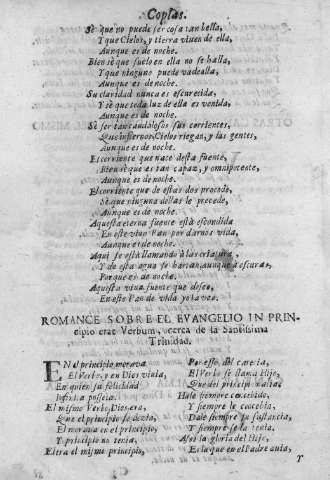 Coplas.
Sè que no puede ser cosa tan bella,
Y que Cielos, y tierra viuen de ella,
Aunque es de noche.
Bien sè que suelo en ella no se halla,
Y que ninguno puede vadealla,
Aunque es de noche.
Su claridad nunca es escurecida,
Y sè que toda luz de ella es venida,
Aunque es de noche.
Sè ser tan caudalosos sus corrientes,
Que infiernos, Cielos riegan, y las gentes,
Aunque es de noche.
El corriente que nace desta fuente,
Bien sè que es tan capaz, y omnipotente,
Aunque es de noche.
El corriente que de estas dos procede,
Sè que ninguna dellas le precede,
Aunque es de noche.
Aquesta eterna fuente està escondida
En este viuo Pan por darnos vida,
Aunque es de noche.
Aqui se està llamando à las criaturas,
Y de esta agua se hartan, aunque à escuras,
Porque es de noche.
Aquesta viua fuente que deseo,
En este Pan de vida yo la veo.
ROMANCE SOBRE EL EVANGELIO IN PRIN-
cipio erat Verbum, acerca de la Santissima
Trinidad.
EN el principio moraua
El Verbo, y en Dios viuia,
En quien su felicidad
Infinita posseia.
El mismo Verbo Dios era,
Que el principio se dezia,
El moraua en el principio,
Y principio no tenia,
El era el mismo principio,
Por esso, del carecia,
El Verbo se llama Hijo,
Que del principio nacia,
Hale siempre concebido,
Y siempre le concebia,
Dale siempre su sustancia,
Y siempre se la tenia.
Assi la gloria del Hijo,
Es la que en el Padre auia,
Y